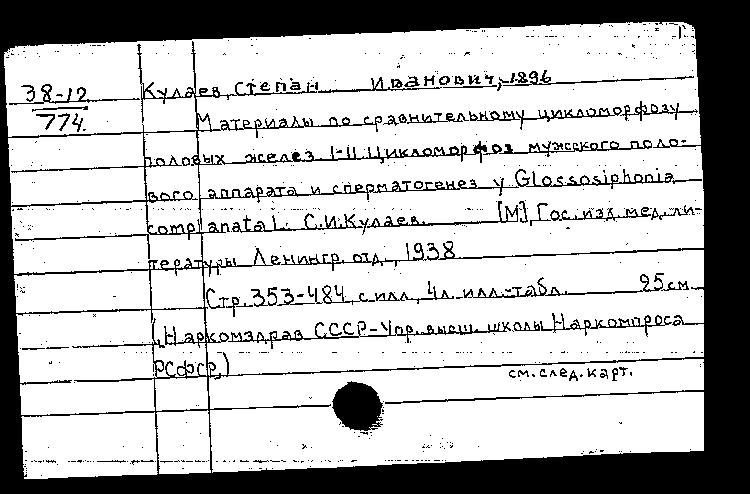 38-12
774.
Кулаев, Степан Иванович, 1896
Материалы по сравнительному цикломорфозу
половых желез I-II Цикломорфоз мужского поло-
вого аппарата и сперматогенез у Glossosiphonia
complanata L. С.И.Кулаев. [М.], Гос. изд. мед. ли-
тературы Ленингр. отд., 1938
Стр. 353-484 с илл., 4л. илл.-табл. 25см
(Наркомздрав СССР-Упр. высш. школы Наркомпроса
РСФСР)
см. след. карт.